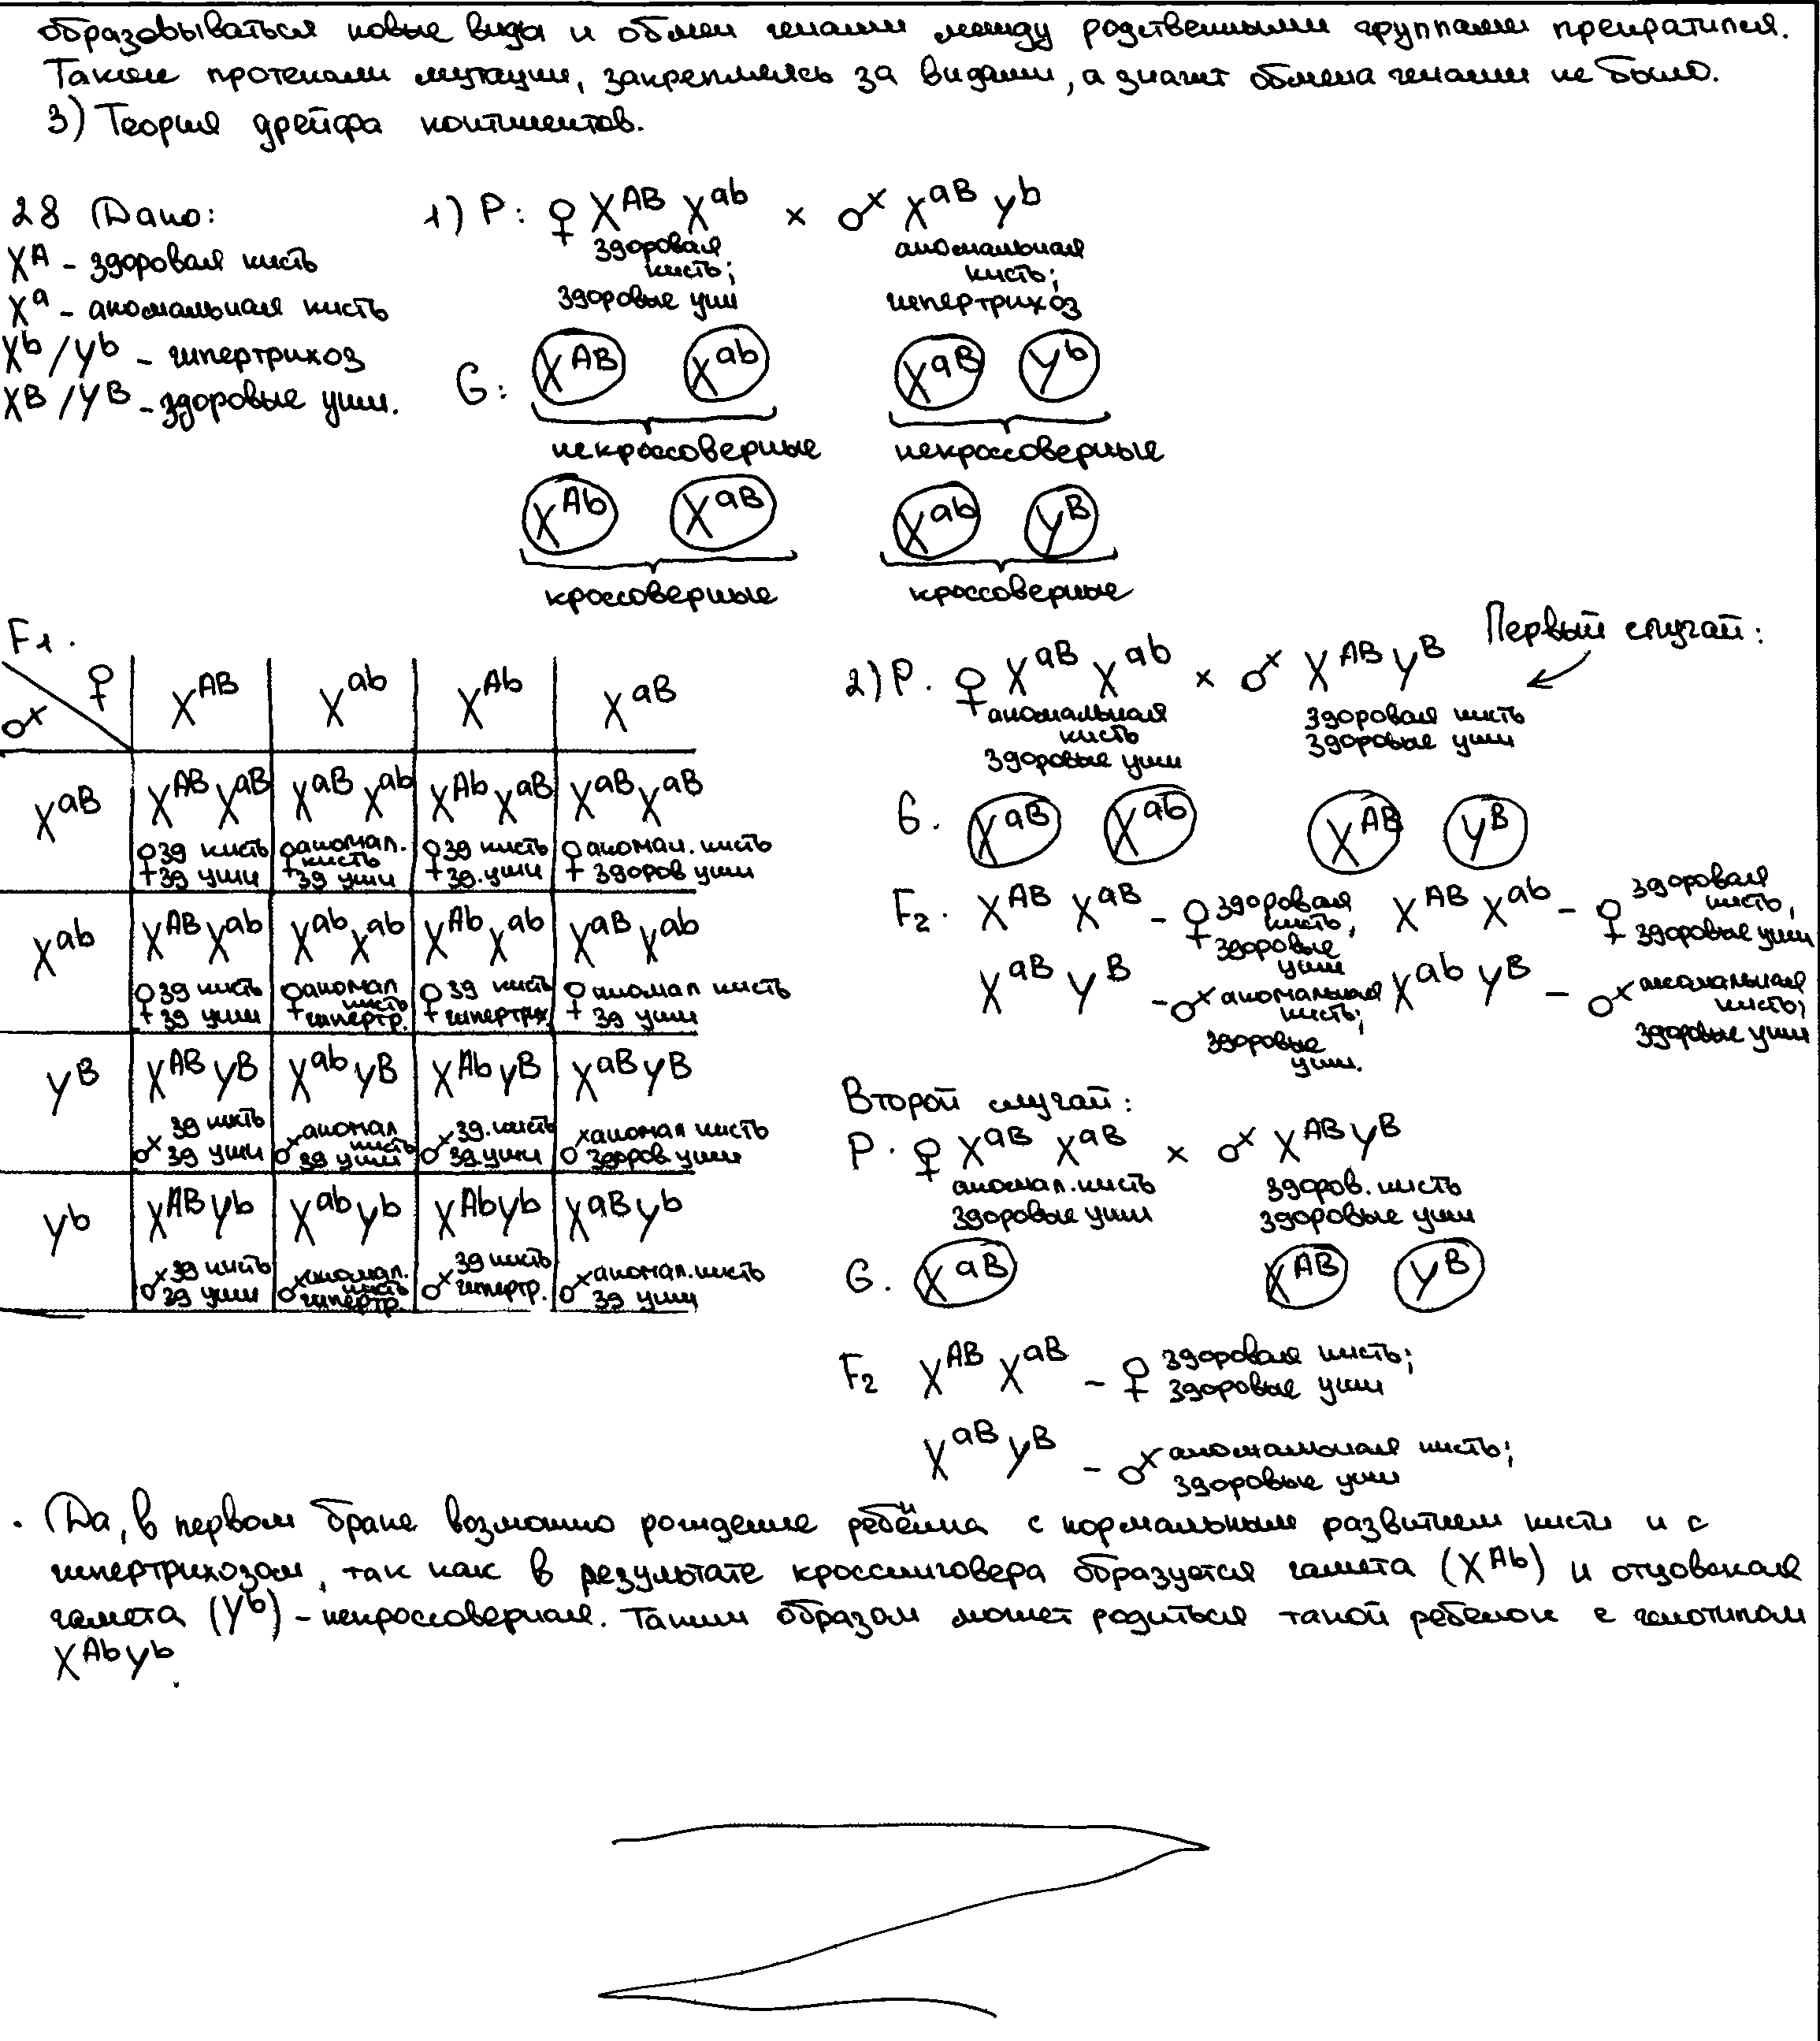 образовываться новые виды и обмен генами между родственными группами прекратился.
Также протекали мутации, закрепляясь за видами, а значит обмена генами не было.
3) Теория дрейфа континентов.
28 Дано:
X^A - здоровая кисть
X^a - аномальная кисть
X^b / Y^b - гипертрихоз
X^B / Y^B - здоровые уши.
1) P: ♀ X^AB X^ab × ♂ X^aB Y^b
здоровая кисть; здоровые уши
аномальная кисть; гипертрихоз
G: X^AB X^ab X^aB Y^b
некроссоверные некроссоверные
X^Ab X^aB X^ab Y^B
кроссоверные кроссоверные
F1.
♂ ♀ X^AB X^ab X^Ab X^aB
X^aB X^AB X^aB X^aB X^ab X^Ab X^aB X^aB X^aB
♀ зд кисть зд уши ♀ аномал. кисть зд уши ♀ зд кисть зд. уши ♀ аномал. кисть здоров уши
X^ab X^AB X^ab X^ab X^ab X^Ab X^ab X^aB X^ab
♀ зд кисть зд уши ♀ аномал кисть гипертр. ♀ зд кисть гипертрих. ♀ аномал кисть зд уши
Y^B X^AB Y^B X^ab Y^B X^Ab Y^B X^aB Y^B
♂ зд кисть зд уши ♂ аномал кисть зд уши ♂ зд. кисть зд. уши ♂ аномал кисть здоров. уши
Y^b X^AB Y^b X^ab Y^b X^Ab Y^b X^aB Y^b
♂ зд кисть зд уши ♂ аномал. кисть гипертр. ♂ зд кисть гипертр. ♂ аномал. кисть зд уши
Первый случай:
2) P. ♀ X^aB X^ab × ♂ X^AB Y^B
аномальная кисть здоровые уши
здоровая кисть здоровые уши
G. X^aB X^ab X^AB Y^B
F2. X^AB X^aB - ♀ здоровая кисть, здоровые уши X^AB X^ab - ♀ здоровая кисть, здоровые уши
X^aB Y^B - ♂ аномальная кисть; здоровые уши. X^ab Y^B - ♂ аномальная кисть; здоровые уши
Второй случай:
P. ♀ X^aB X^aB × ♂ X^AB Y^B
аномал. кисть здоровые уши
здоров. кисть здоровые уши
G. X^aB X^AB Y^B
F2 X^AB X^aB - ♀ здоровая кисть; здоровые уши
X^aB Y^B - ♂ аномальная кисть; здоровые уши
· Да, в первом браке возможно рождение ребёнка с нормальным развитием кисти и с
гипертрихозом, так как в результате кроссинговера образуется гамета (X^Ab) и отцовская
гамета (Y^b) - некроссоверная. Таким образом может родиться такой ребенок с генотипом
X^Ab Y^b.